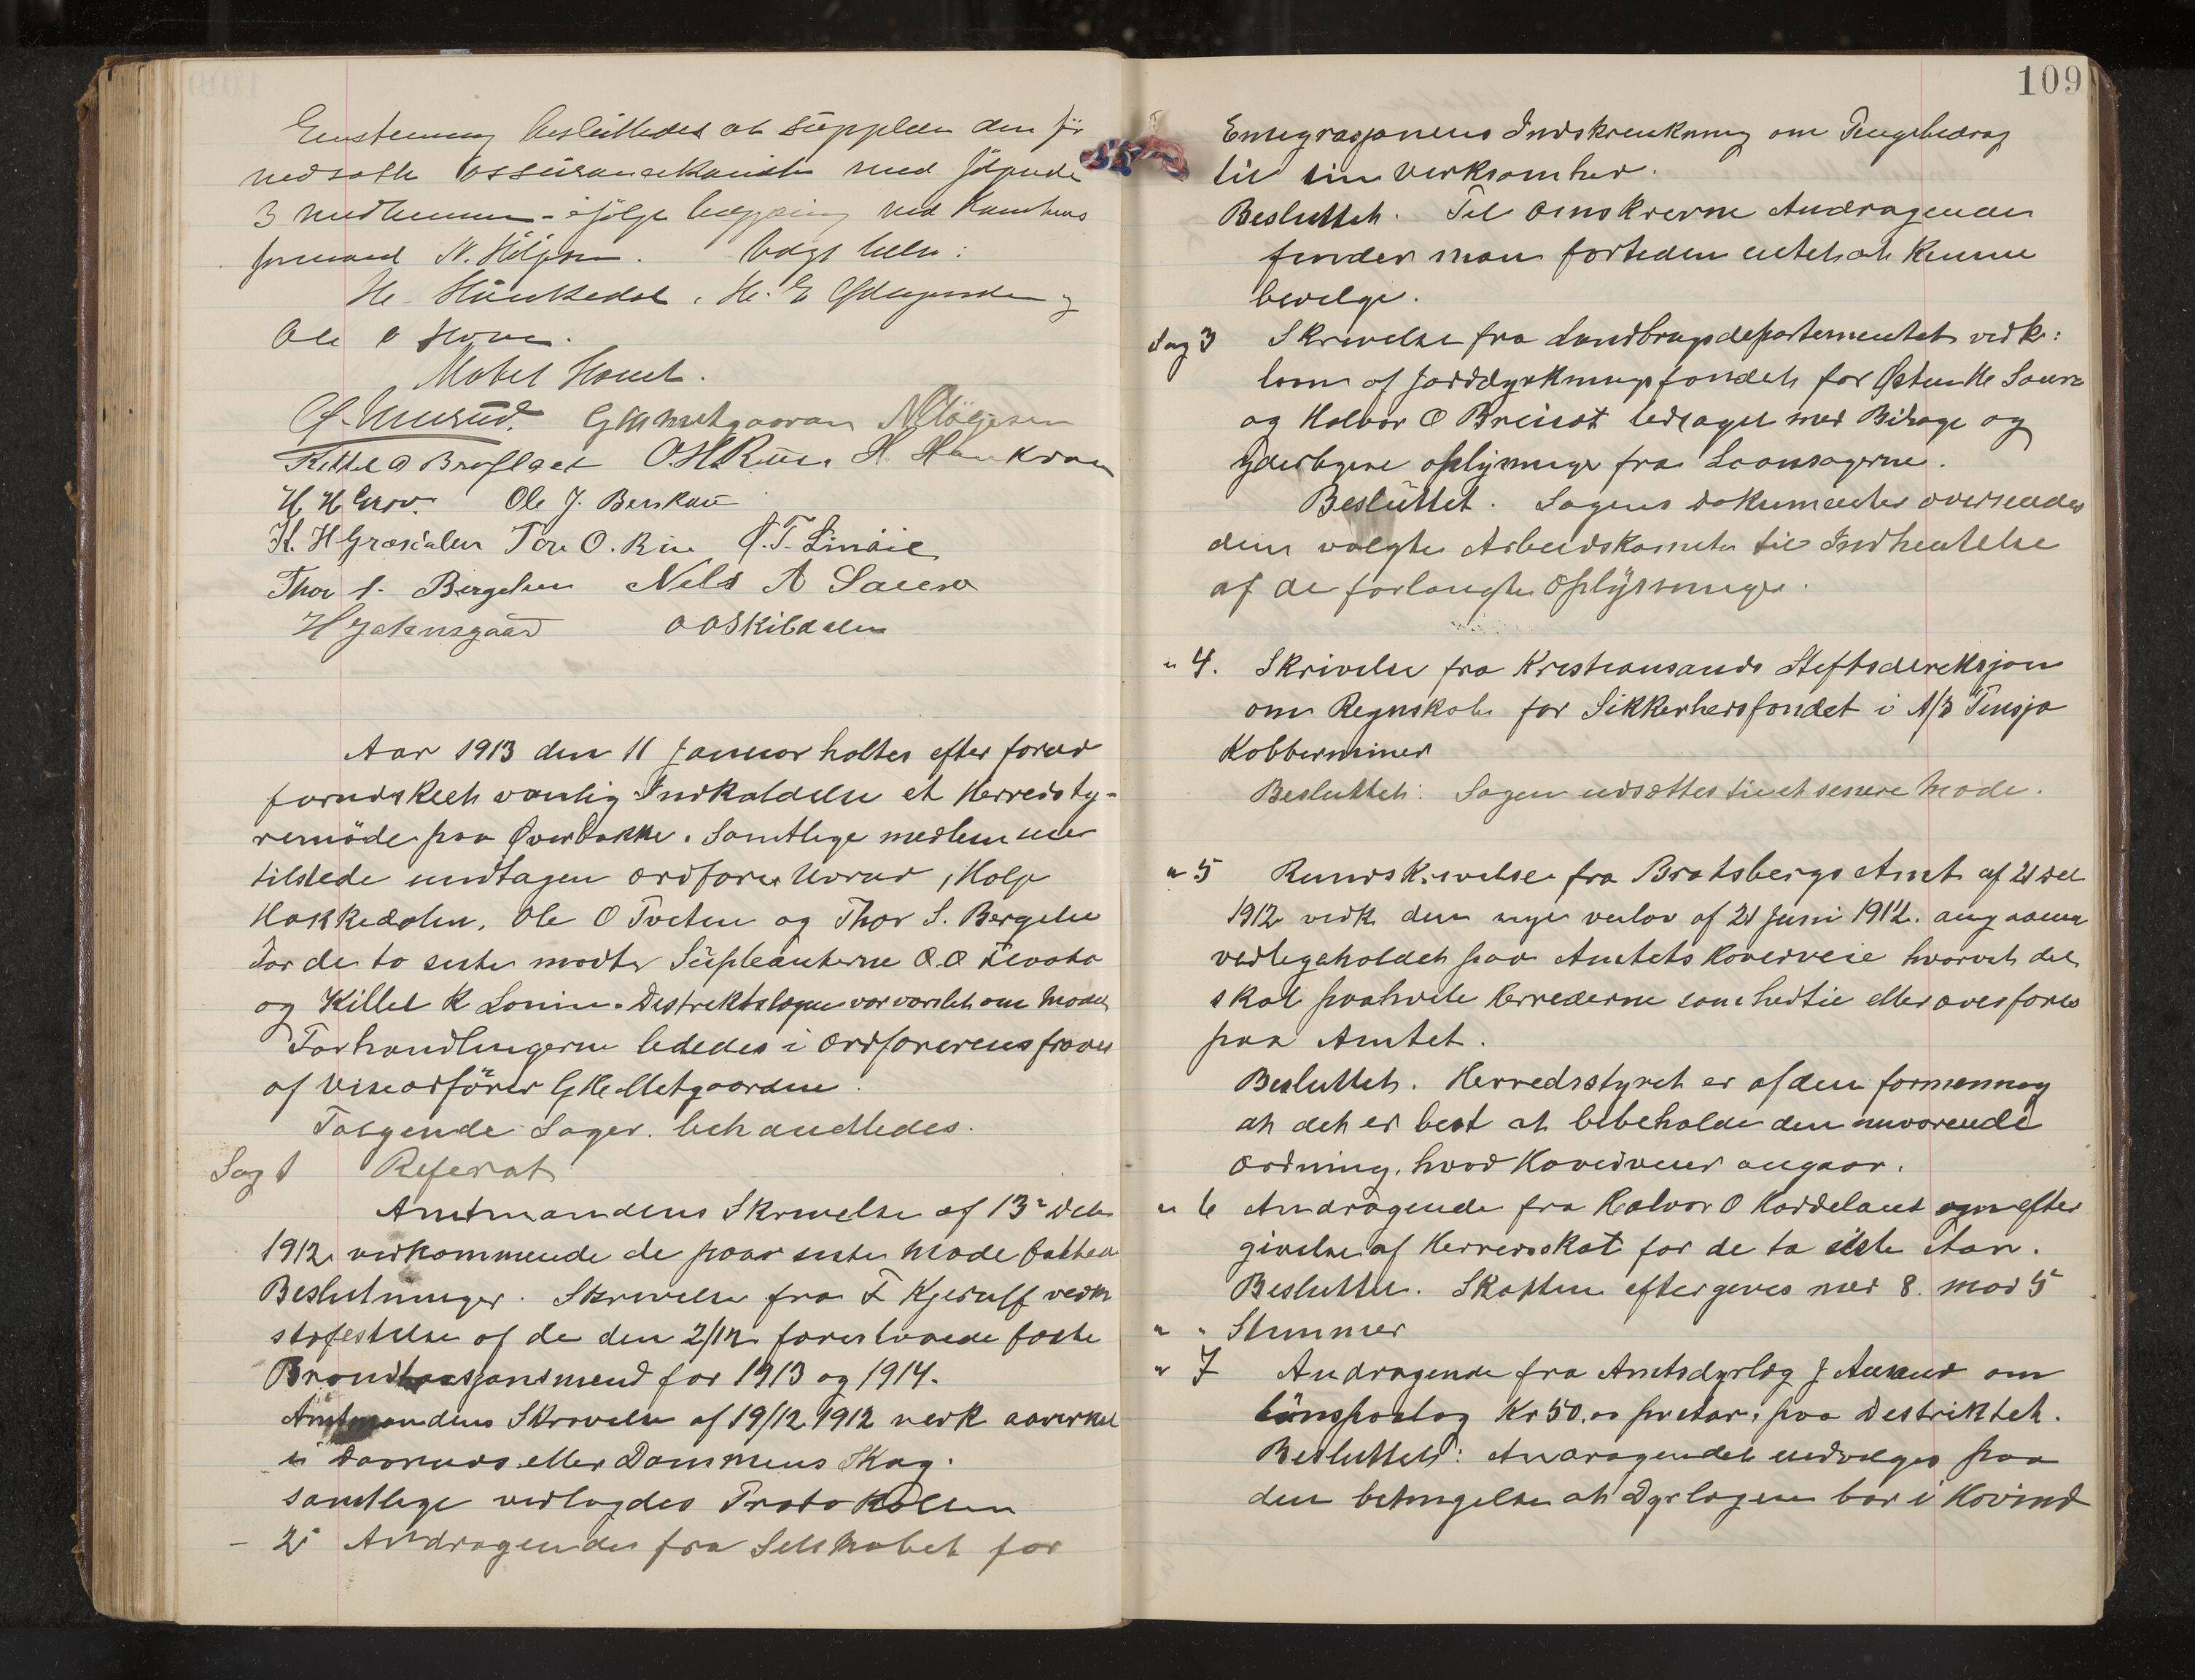 Enstemmig besluttedes at supplere den før
nedsatte assurancekomite med følgende
3 medlemmer - ifølge ved Komiteens
formand N. Kølgesen. Valgt blev:
H. Haukedal, H. E. og
Ole O
Mødet Hævet.
G M Metgaarden N Kølgesen
Kittel O Broflaet O. H. Rue H. Haukdal
H H Grov. Ole J. Berskau
K. H Græsdalen Tor O. Rue O. T. Linaae
Thor S. Bergelsen Nils A Saura
H Jakunsgaard O O Skibdalen
Aar 1913 den 11 Januar holtes efter forud
forudskeet vanlig Indkaldelse et Herredsty-
remöde paa Øverbakke. Samtlige medlemmer
tilstede undtagen ordfører Uvrud, Holje
Hakkedalen, Ole O Tveten og Thor S. Bergelse
For de to siste mødte Supleanterne O. O
og Killel K Lonim. Distriktslægen var varslet om Mødet
Forhandlingerne lededes i Ordførerens fravær
af viseordförer G H Metgaarden.
Følgende Sager behandledes.
Sag 1 Referat
Amtmandens Skrivelse af 13de Dec
1912 vedkommende de paa siste Møde fattede
Beslutninger. Skrivelse fra F Kjerulf vedk
stafestelse af de den 2/12 foreslaaede faste
Brandtaxsjonsmend for 1913 og 1914.
Amtmandens Skrivelse af 19/12 1912 vedk aavirket
i eller Dammens Skog.
samtlige vedlagdes Protokollen
- 2 Andragendes fra Selskabet for
109
Emegrasjonens Indskrenkning om Pengebedrag
til sin Verksomhed.
Besluttet. Til omskrevne Andragender
finder man fortiden intet at kunne
bevilge.
Sag 3 Skrivelse fra Landbrugsdepartementet vedk:
laan af Jorddyrkningsfondet for Østen H Saura
og Halvor O ledsaget med Bilage og
yderligere oplysninger fra Laansøgerne.
Besluttet. Sagens dokumenter oversendes
den valgte Arbeidskomite til Indhentelse
af de forlangte Oplysninger.
" 4. Skrivelse fra Kristiansands Steftsdereksjon
om Regnskab for Sikkerhedsfondet i A/S Tinsjø
Kobberminer
Besluttet: Sagen udsættes til et senere Møde.
" 5 Rundskrivelse fra Bratsbergs Amt af 21 Dec
1912 vedk den nye veilov af 21 Juni 1912. angaaende
vedligeholdet paa Amtets Hovedveie hvorvet det
skal paahvile Herrederne som hidtil eller overføres
paa Amtet.
Besluttet. Herredsstyret er af den formenning
at det er best at bibeholde den nuværende
Ordning, hvad Hovedveier angaar.
" 6 Andragende fra Halvor O Haddeland om efter
givelse af Herredsskat for de to siste Aar.
Besluttet. Skatten eftergives med 8. mod 5
" " Stemmer
" 7 Andragende fra Amtsdyrlæg J om
lönspaalæg Kr 50.00 pr aar, paa Destriktet.
Besluttet: Andragendet indvilges paa
den betingelse at Dyrlægen bor i Hovind